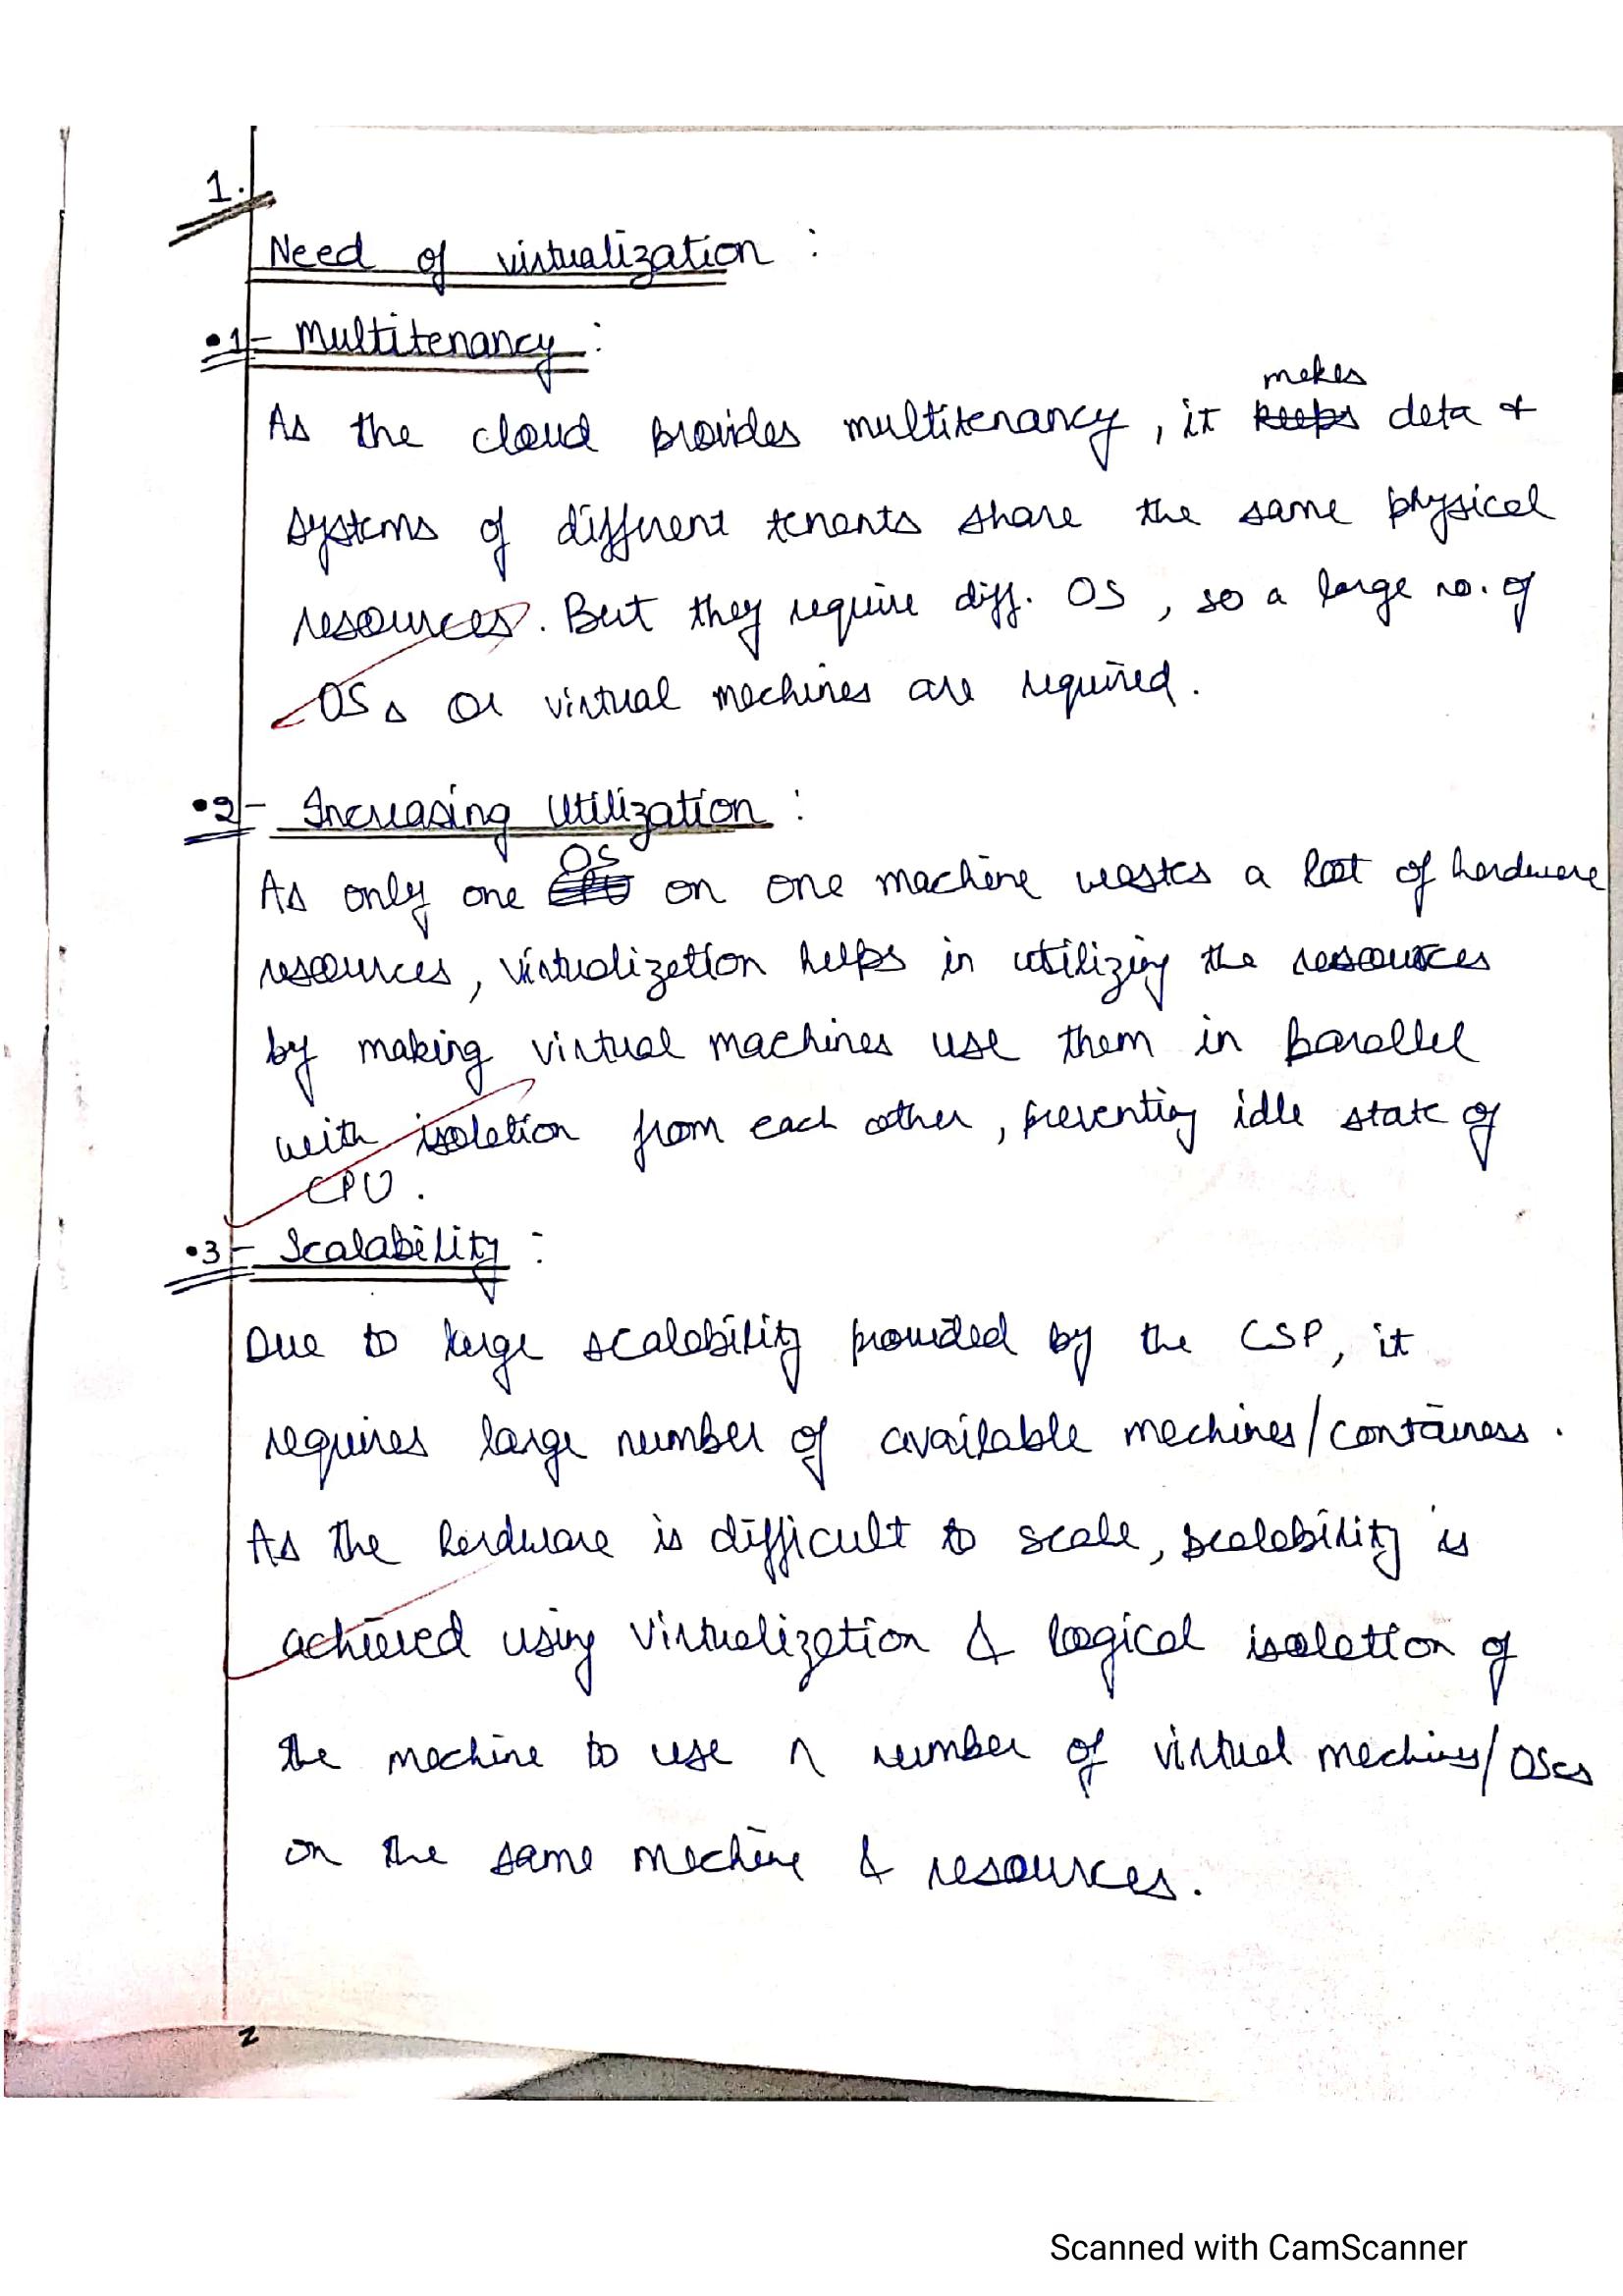 1.
Need of virtualization :
•1- Multitenancy :
makes
As the cloud provides multitenancy, it keeps data &
systems of different tenants share the same physical
resources. But they require diff. OS, so a large no. of
OSs or virtual machines are required.
•2- Increasing Utilization :
OS
As only one CPU on one machine wastes a lot of hardware
resources, virtualization helps in utilizing the resources
by making virtual machines use them in parallel
with isolation from each other, preventing idle state of
CPU.
•3- Scalability :
Due to large scalability provided by the CSP, it
requires large number of available machines/containers.
As the hardware is difficult to scale, scalability is
achieved using virtualization & logical isolation of
the machine to use n number of virtual machines/OSes
on the same machine & resources.
2
Scanned with CamScanner